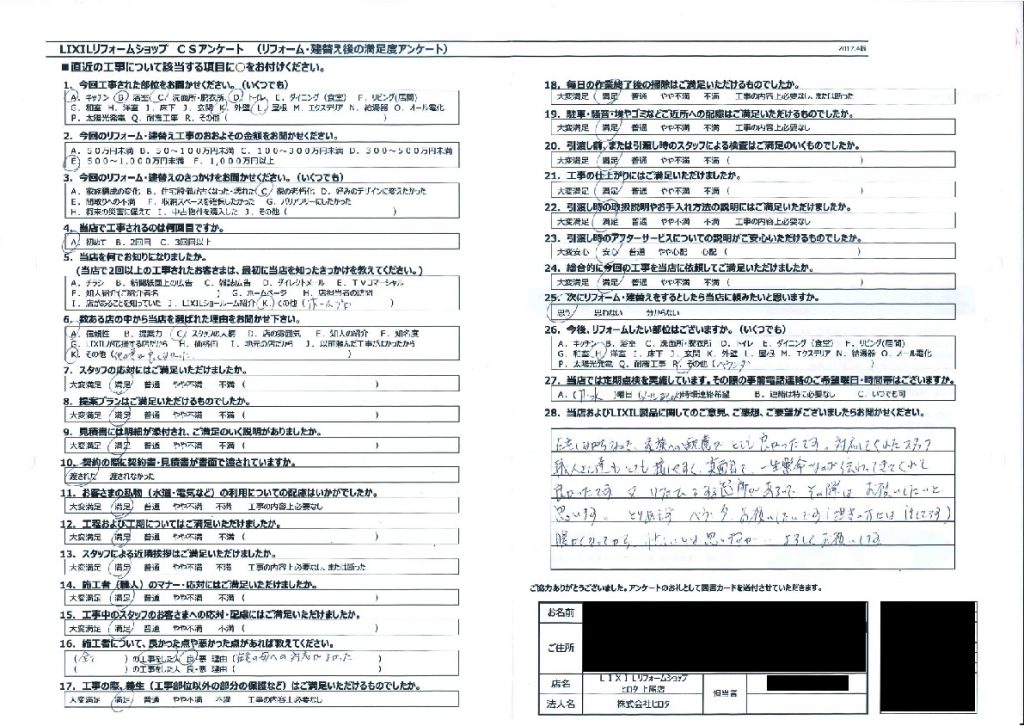 LIXILリフォームショップ CSアンケート (リフォーム・建替え後の満足度アンケート)
■直近の工事について該当する項目に○をお付けください。
1. 今回工事された部位をお聞かせください。(いくつでも)
A. キッチン B. 浴室 C. 洗面所・脱衣所 D. トイレ E. ダイニング(食堂) F. リビング(居間)
G. 和室 H. 洋室 I. 床下 J. 玄関 K. 外壁 L. 屋根 M. エクステリア N. 給湯器 O. オール電化
P. 太陽光発電 Q. 耐震工事 R. その他 ( )
2. 今回のリフォーム・建替え工事のおおよその金額をお聞かせください。
A. 50万円未満 B. 50～100万円未満 C. 100～300万円未満 D. 300～500万円未満
E. 500～1,000万円未満 F. 1,000万円以上
3. 今回のリフォーム・建替えのきっかけをお聞かせください。(いくつでも)
A. 家族構成の変化 B. 住宅設備が古くなった・壊れた C. 家の老朽化 D. 好みのデザインに変えたかった
E. 間取りへの不満 F. 収納スペースを確保したかった G. バリアフリーにしたかった
H. 将来の災害に備えて I. 中古物件を購入した J. その他 ( )
4. 当店で工事されるのは何回目ですか。
A. 初めて B. 2回目 C. 3回目以上
5. 当店を何でお知りになりましたか。
(当店で2回以上の工事されたお客さまは、最初に当店を知ったきっかけを教えてください。)
A. チラシ B. 新聞紙面上の広告 C. 雑誌広告 D. ダイレクトメール E. TVコマーシャル
F. 知人紹介(ご紹介者名 ) G. ホームページ H. 店担当者の訪問
I. 店があることを知っていた J. LIXILショールーム紹介 K. その他 ( )
6. 数ある店の中から当店を選ばれた理由をお聞かせ下さい。
A. 信頼性 B. 提案力 C. スタッフの人柄 D. 店の雰囲気 E. 知人の紹介 F. 知名度
G. LIXILが応援する店だから H. 価格面 I. 地元の店だから J. 以前頼んだ工事がよかったから
K. その他 ( )
7. スタッフの応対にはご満足いただけましたか。
大変満足 満足 普通 やや不満 不満 ( )
8. 提案プランはご満足いただけるものでしたか。
大変満足 満足 普通 やや不満 不満 ( )
9. 見積書には明細が添付され、ご満足のいく説明がありましたか。
大変満足 満足 普通 やや不満 不満 ( )
10. 契約の際に契約書・見積書が書面で渡されていますか。
渡された 渡されなかった
11. お客さまの私物(水道・電気など)の利用についての配慮はいかがでしたか。
大変満足 満足 普通 やや不満 不満 工事の内容上必要なし
12. 工程および工期についてはご満足いただけましたか。
大変満足 満足 普通 やや不満 不満 ( )
13. スタッフによる近隣挨拶はご満足いただけましたか。
大変満足 満足 普通 やや不満 不満 工事の内容上必要なし、または断った
14. 施工者(職人)のマナー・応対にはご満足いただけましたか。
大変満足 満足 普通 やや不満 不満 ( )
15. 工事中のスタッフのお客さまへの応対・配慮にはご満足いただけましたか。
大変満足 満足 普通 やや不満 不満 ( )
16. 施工者について、良かった点や悪かった点があれば教えてください。
( ) の工事をした人 良・悪 理由 ( )
( ) の工事をした人 良・悪 理由 ( )
17. 工事の際、養生(工事部位以外の部分の保護など)はご満足いただけるものでしたか。
大変満足 満足 普通 やや不満 不満 工事の内容上必要なし
18. 毎日の作業終了後の掃除はご満足いただけるものでしたか。
大変満足 満足 普通 やや不満 不満 工事の内容上必要なし、または断った
19. 駐車・騒音・埃やゴミなどご近所への配慮はご満足いただけるものでしたか。
大変満足 満足 普通 やや不満 不満 工事の内容上必要なし
20. 引渡し前、または引渡し時のスタッフによる検査はご満足のいくものでしたか。
大変満足 満足 普通 やや不満 不満 ( )
21. 工事の仕上がりにはご満足いただけましたか。
大変満足 満足 普通 やや不満 不満 ( )
22. 引渡し時の取扱説明やお手入れ方法の説明にはご満足いただけましたか。
大変満足 満足 普通 やや不満 不満 工事の内容上必要なし
23. 引渡し時のアフターサービスについての説明がご安心いただけるものでしたか。
大変安心 安心 普通 やや心配 心配 ( )
24. 総合的に今回の工事を当店に依頼してご満足いただけましたか。
大変満足 満足 普通 やや不満 不満 ( )
25. 次にリフォーム・建替えをするとしたら当店に頼みたいと思いますか。
思う 思わない 分からない
26. 今後、リフォームしたい部位はございますか。(いくつでも)
A. キッチン B. 浴室 C. 洗面所・脱衣所 D. トイレ E. ダイニング(食堂) F. リビング(居間)
G. 和室 H. 洋室 I. 床下 J. 玄関 K. 外壁 L. 屋根 M. エクステリア N. 給湯器 O. オール電化
P. 太陽光発電 Q. 耐震工事 R. その他 ( ベランダ )
27. 当店では定期点検を実施しています。その際の事前電話連絡のご希望曜日・時間帯はございますか。
A. ( )曜日 ( )時頃連絡希望 B. 連絡は特に必要なし C. いつでも可
28. 当店およびLIXIL製品に関してのご意見、ご感想、ご要望がございましたらお聞かせください。
良かったです 又 リフォームする その際は お願いしたいと
思います。 とりあえず ベランダ お願いしたいです
ご協力ありがとうございました。アンケートのお礼として図書カードを送付させていただきます。
お名前
ご住所
店名 LIXILリフォームショップ ヒロタ 上尾店 担当者
法人名 株式会社ヒロタ